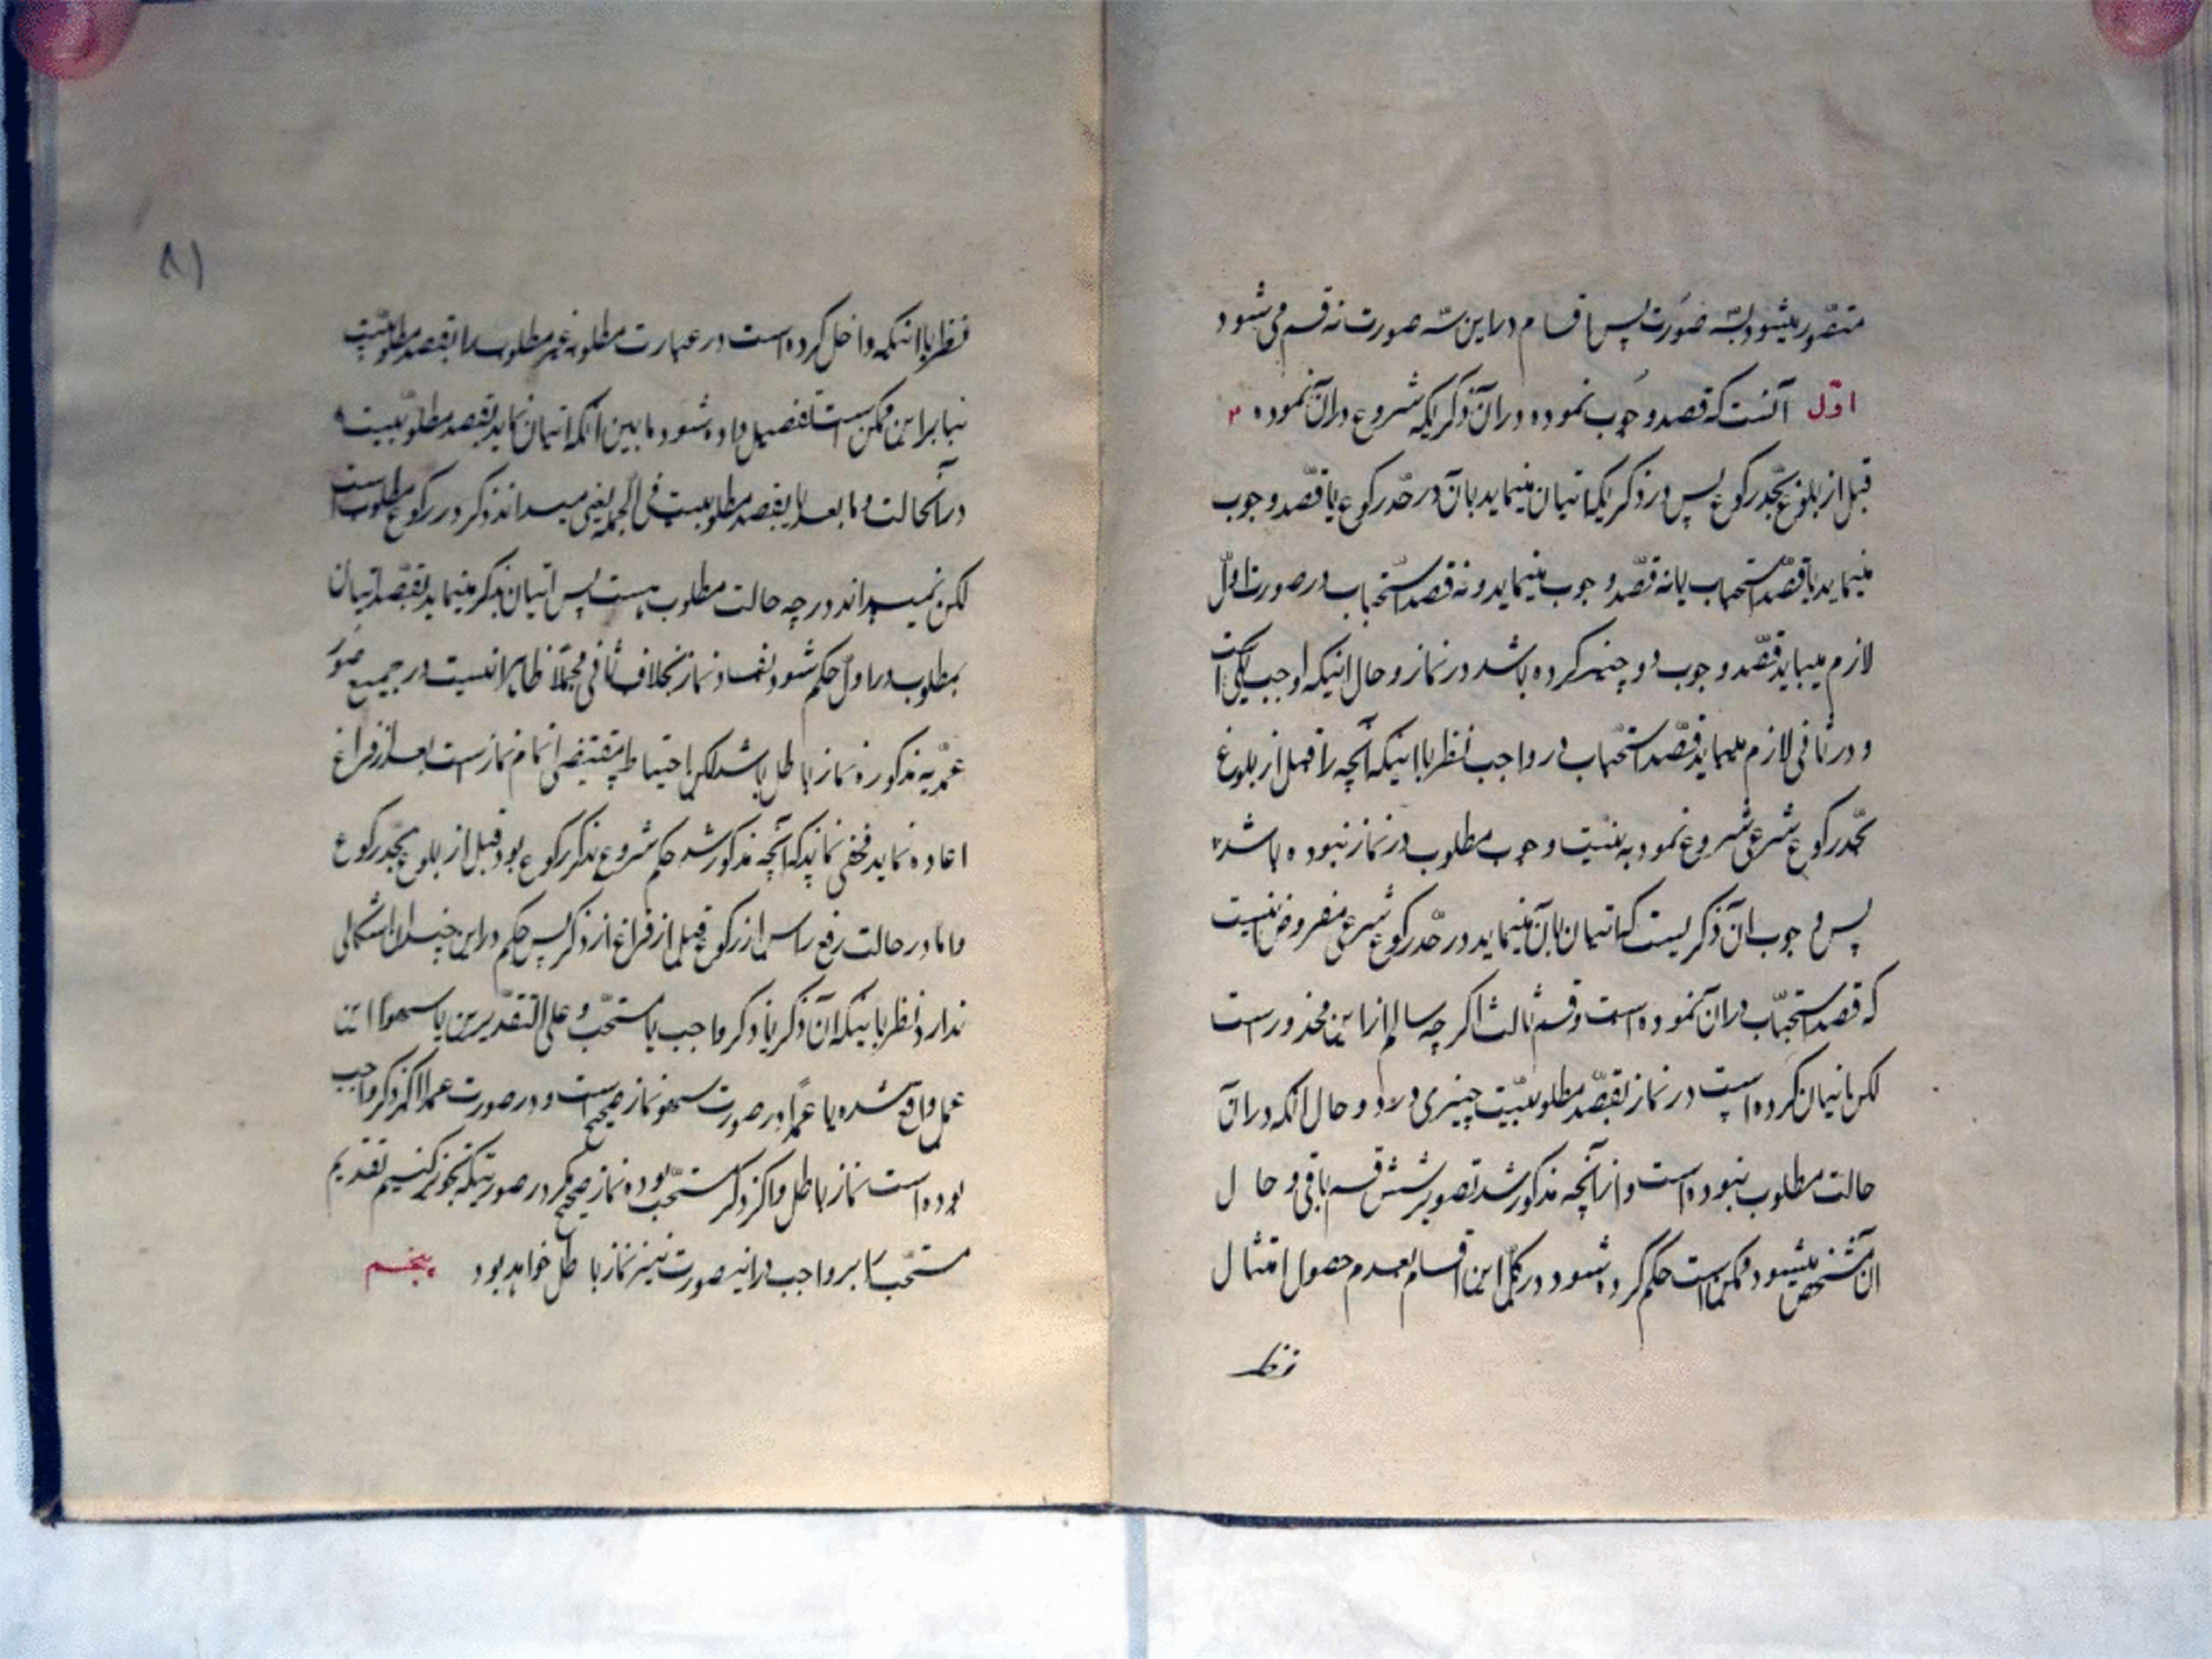 متصّور میشود بسّه صُورت پس اقسام دراین سّه صورت نه قسم می شود
اوّل آنست که قصد وجُوب نموده دران ذکریکه شروع دران نموده
قبل از بلوغ بحّد رکوع پس در ذکریکه اتیان مینماید بان در حّد رکوع یا قصّد وجوب
مینماید یا قصّد استحباب یا نه قصّد وجوب مینماید و نه قصد استحباب در صورت اوّل
لازم میباید قصّد وجوب دو چیز کرده باشد در نماز و حال اینکه واجب یکی است
و در ثانی لازم میباید قصّد استحباب در واجب نظر باینکه آنچه را قبل از بلوغ
بحّد رکوع شرعی شروع نمود به نیّت وجوب مطلوب در نماز نبوده باشد
پس وجوب ان ذکریست که اتیان بان مینماید در حّد رکوع شرعی مفروض نیست
که قصد استحبّاب دران نموده است و قسم ثالث اگرچه سالم ازاین محذور است
لکن اتیان کرده است در نماز بقصّد مطلوبیّت چیزی را و حال انکه دران
حالت مطلوب نبوده است و ازانچه مذکور شد تصویر شش قسم باقی و حال
ان مشخص میشود ممکن است حکم کرده شود در کلّ این اقسام بعدم حصول امتثال
نظر
۸۱
نظر باینکه داخل کرده است در عبارت مطلوبه غیر مطلوب را بقصد مطلوبیّت
بنابراین ممکن است تفصیل داده شود مابین انکه اتیان نماید بقصد مطلوبیّت
درآنحالت و مابعد یا بقصد مطلوبیت فی الجمله یعنی میداند ذکر در رکوع مطلوب است
لکن نمیداند در چه حالت مطلوب هست پس اتیان بذکر مینماید بقصّد اتیان
بمطلوب در اوّل حکم شود بفساد نماز بخلاف ثانی مجملا ظاهر انست در جمیع صُور
عمدّیه مذکوره نماز باطل باشد لکن احتیاط مقتضی اتمام نماز است بعد از فراغ
اعاده نماید مخفی نماند که آنچه مذکور شد حکم شروع بذکر رکوع بود قبل از بلوغ بحّد رکوع
و اما در حالت رفع راس از رکوع قبل از فراغ از ذکر پس حکم دراین چندان اشکالی
ندارد نظر باینکه آن ذکر یا ذکر واجب یا مستحّب و علی التقدّیرین یا سهواً این
عمل واقع شده یا عمداً در صورت سهو نماز صحیح است و در صورت عمد اگر ذکر واجب
بوده است نماز باطل و اگر ذکر مستحّب بوده نماز صحیح مگر در صورتیکه تجویز نکنیم تقدیم
مستحّب را بر واجب دراینصورت نیز نماز باطل خواهد بود پنجم